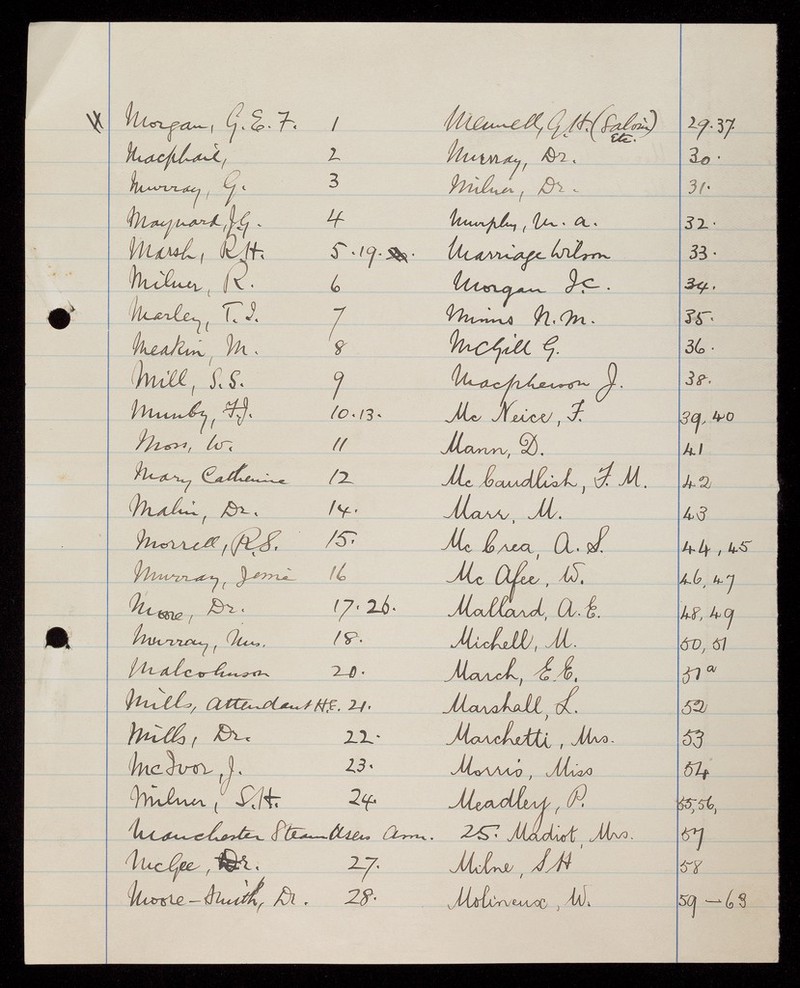 M
Morgan, G. E. F. 1 Mennell, G. H. (Salvin) 29.37.
Etc.
Macphail, 2 Murray, Dr. 30.
Murray, G. 3 Milner, Dr. 31.
Maynard, J. G. 4 Murphy, W. A. 32.
Marsh, R. H. 5.19. Marriage Wilson 33.
Milner, R. 6 Morgan J. C. 34.
Marley, T. I. 7 Minns N. M. 35.
Meakin, M. 8 McGill G. 36.
Mill, S. S. 9 Macpherson J. 38.
Munby, F. J. 10.13. Mc Neice, F. 39, 40
Moss, W. 11 Mann, D. 41
Mary Catherine 12 Mc Caudlish, F. M. 42
Malin, Dr. 14. Marr, M. 43
Morrell, R. S. 15. Mc Crea, A. S. 44, 45
Murray, Jessie 16 Mc Afee, W. 46, 47
Moore, Dr. 17.26. Mallard, A. E. 48, 49
Murray, Mrs. 18. Michell, M. 50, 51
Malcolmson 20. March, E. E. 51a
Mills, Attendant H.E. 21. Marshall, L. 52
Mills, Dr. 22. Marchetti, Mrs. 53
McIvor, J. 23. Morris, Miss 54
Milner, S. H. 24. Meadley, P. 55, 56,
Manchester Steam Users Assn. 25. Madiot, Mrs. 57
McGee, Dr. 27. Milne, S H 58
Moore-Smith, Dr. 28. Molineux, W. 59 - 63